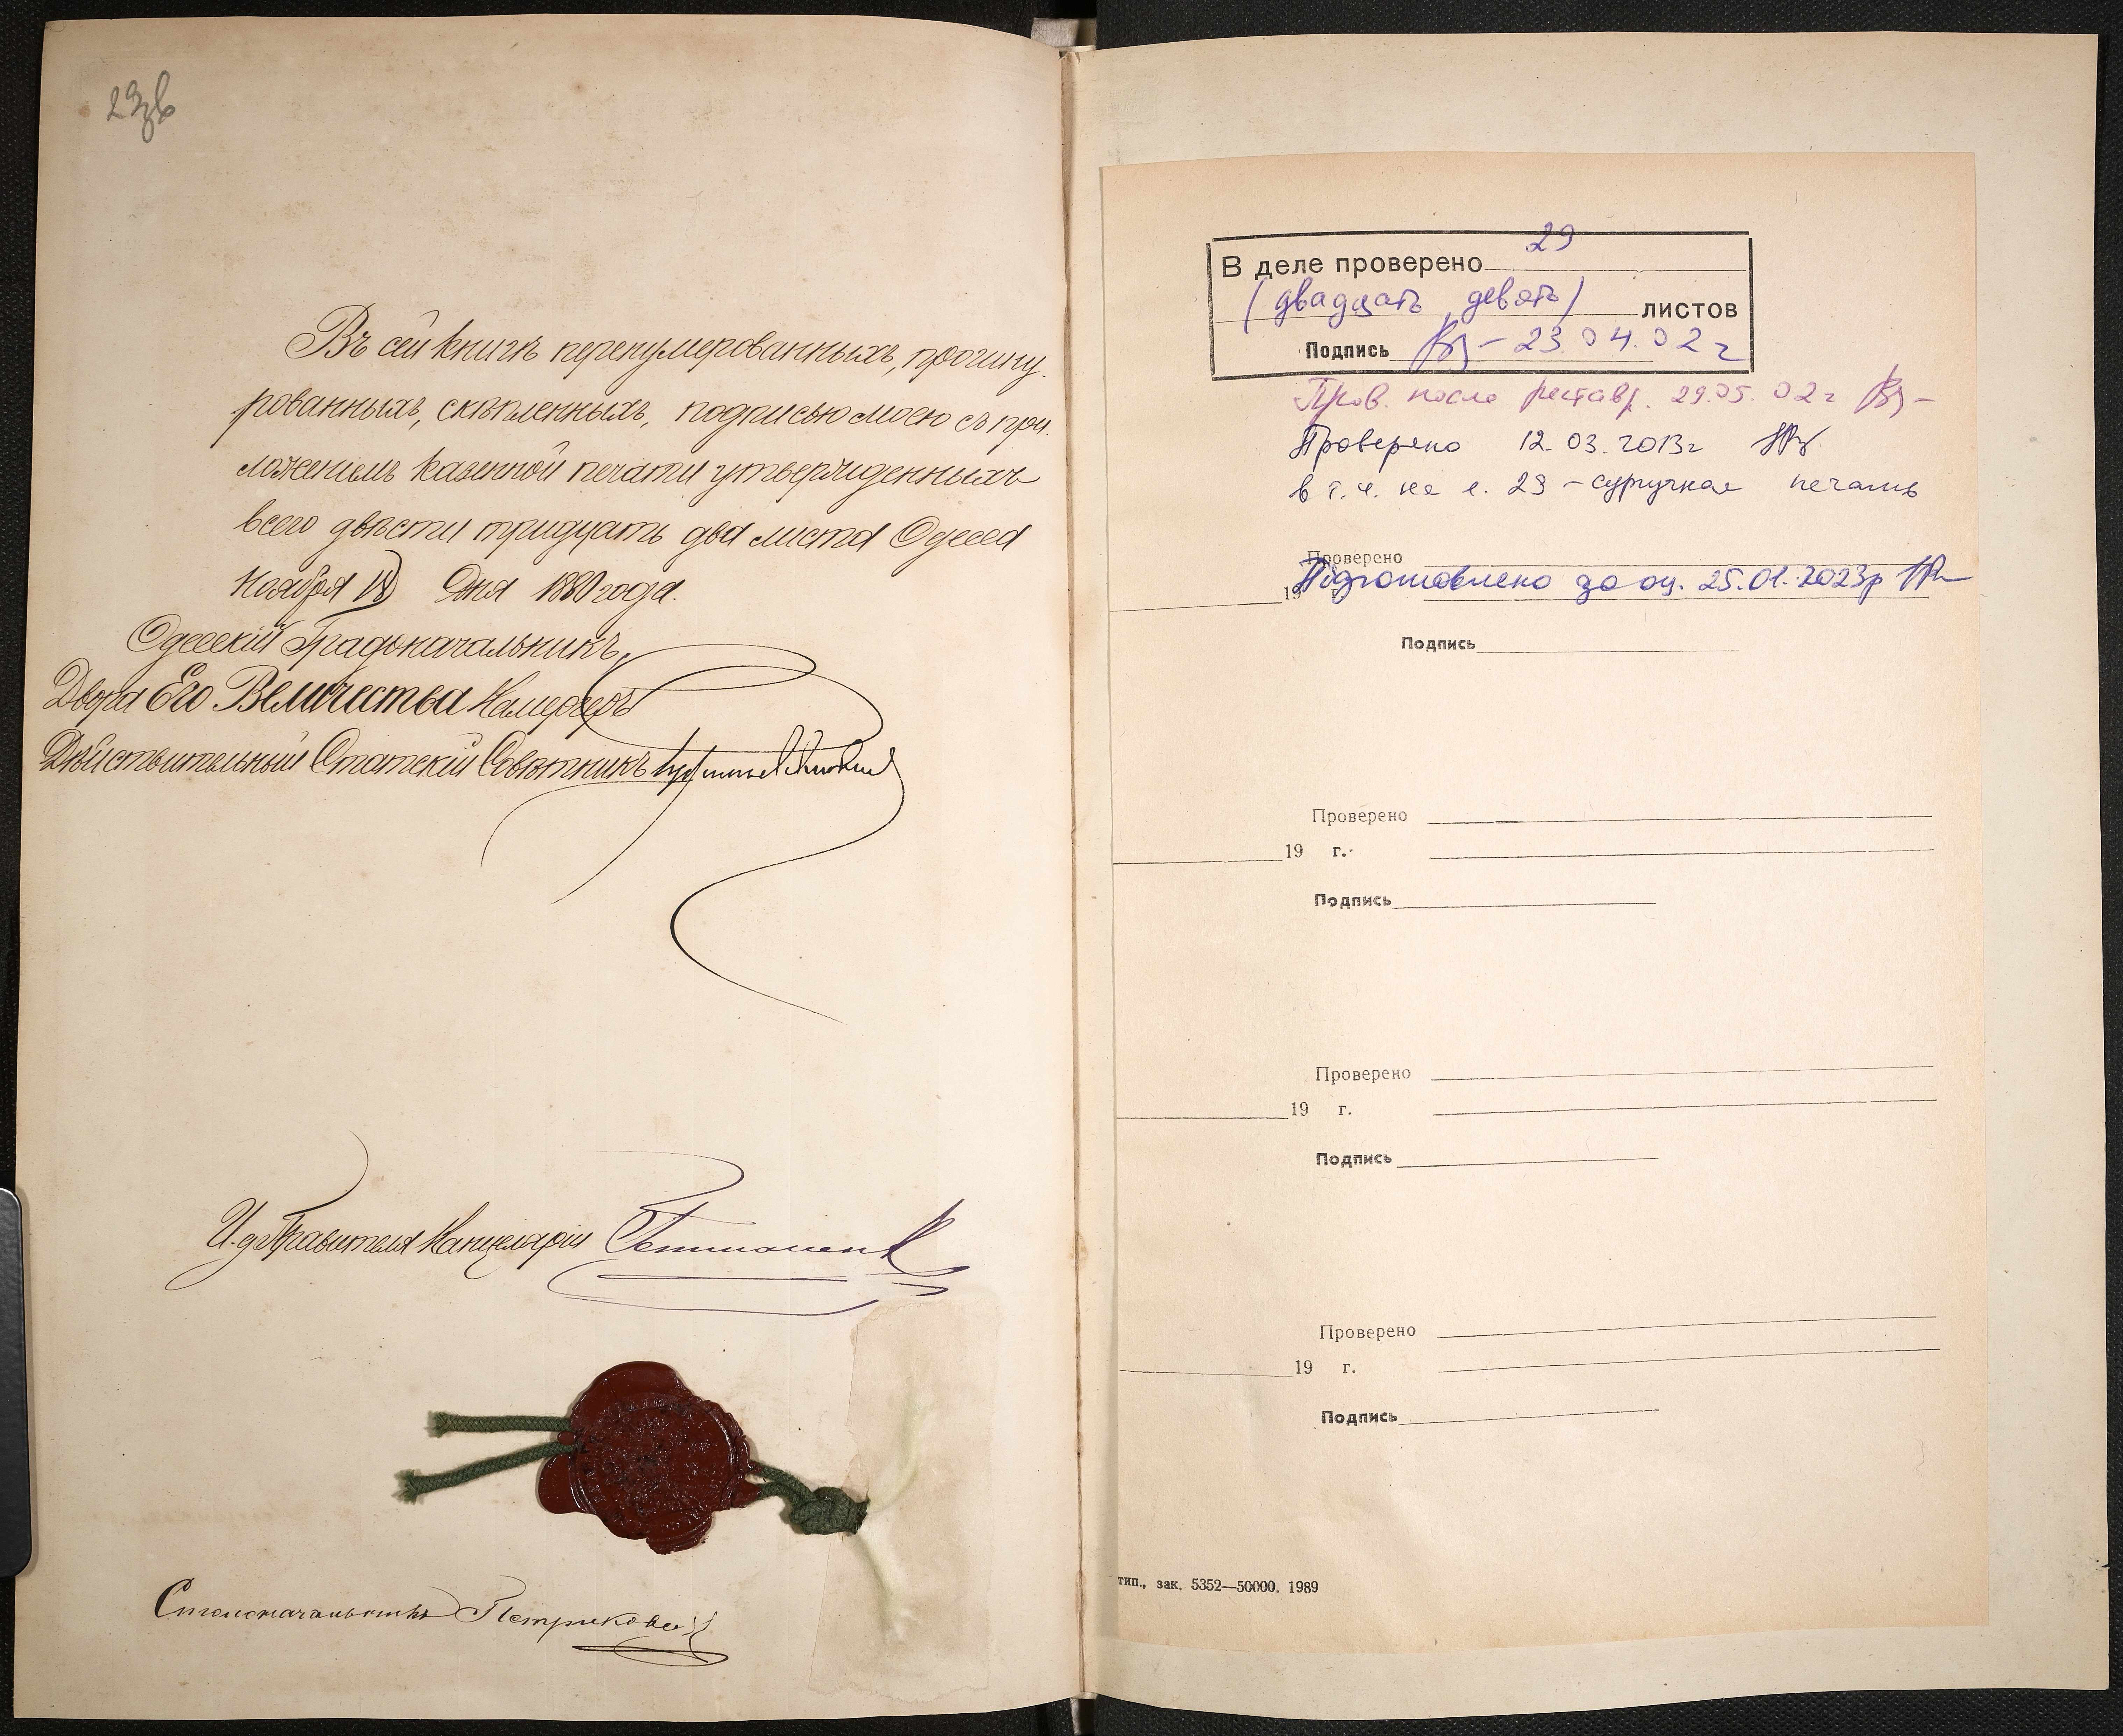 29зв
Въ сей книгѣ перенумерованныхъ, прошну-
рованныхъ, скѣпленныхъ, подписью моею съ при-
ложеніемъ казенной печати утвержденныхъ
всего двѣсти тридцать два листа Одесса
Ноября 18 Дня 1880 года.
Одесскій Градоначальникъ,
Двора Его Величества Камергеръ
Дѣйствительный Статскій Совѣтникъ
И. д. Правителя Канцеляріи
Столоначальникъ Петриковъ
В деле проверено 29
(двадцать девять) листов
Подпись 23.04.02 г
Пров. после реставр. 29.05.02 г
Проверено 12.03.2013г
в т.ч. на л. 29 - сургучная печать
Проверено
Підготовлено до оц. 25.01.2023р
19
Подпись
Проверено
19 г.
Подпись
Проверено
19 г.
Подпись
Проверено
19 г.
Подпись
тип., зак. 5352—50000. 1989